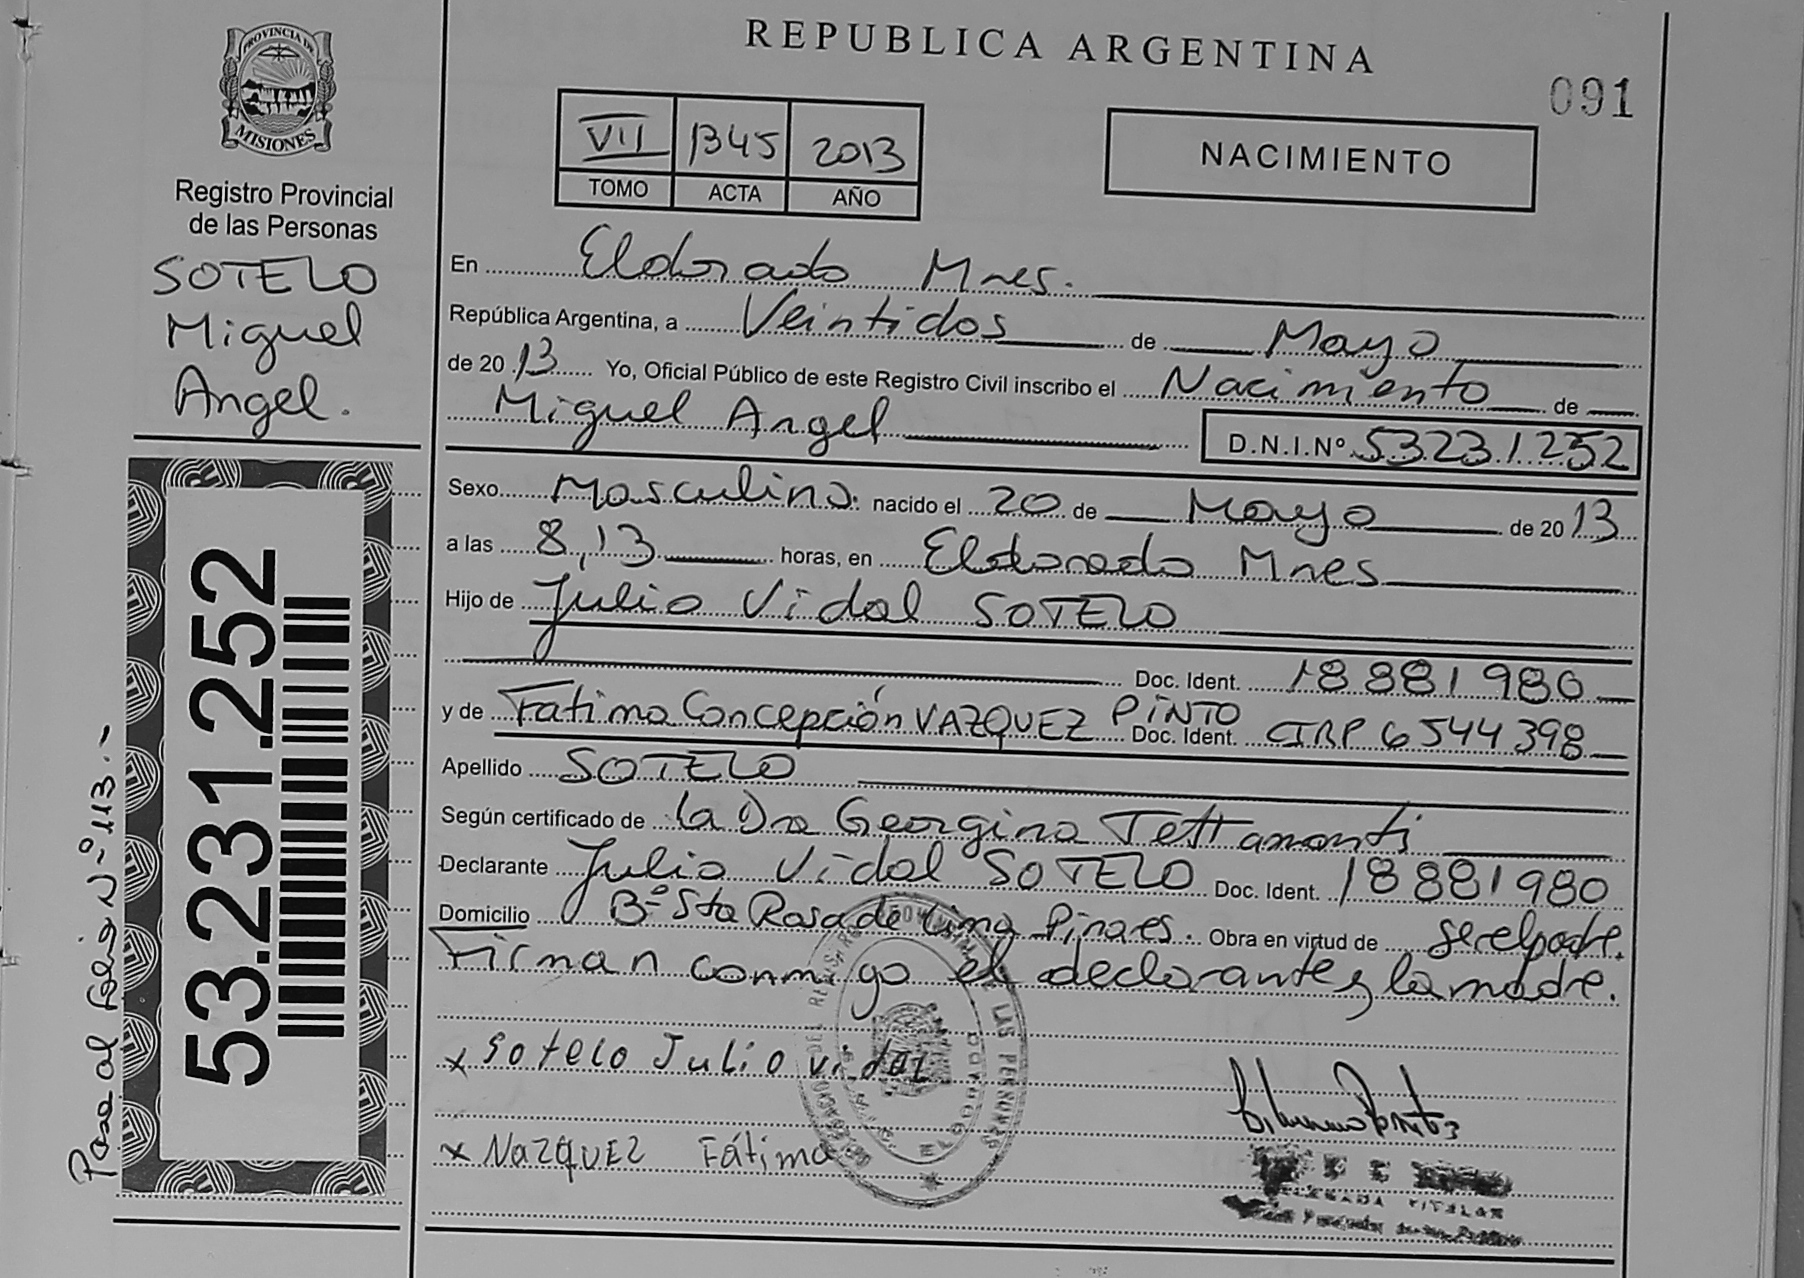 REPUBLICA ARGENTINA
091
PROVINCIA DE
MISIONES
Registro Provincial
de las Personas
SOTELO
Miguel
Angel.
53.231.252
Pasa al folio Nº 113.-
VII 1345 2013
TOMO ACTA AÑO
NACIMIENTO
En Eldorado Mnes.
República Argentina, a Veintidos de Mayo
de 2013 Yo, Oficial Público de este Registro Civil inscribo el Nacimiento de
Miguel Angel D.N.I.Nº 53231252
Sexo Masculino. nacido el 20 de Mayo de 2013
a las 8,13 horas, en Eldorado Mnes
Hijo de Julio Vidal SOTELO
Doc. Ident. 18881980
y de Fatima Concepción VAZQUEZ PINTO Doc. Ident. CIRP 6544398
Apellido SOTELO
Según certificado de la Dra Georgina Tettamanti
Declarante Julio Vidal SOTELO Doc. Ident. 18881980
Domicilio Bº Sta Rosa de Lima Pinares. Obra en virtud de ser el padre.
Firman conmigo el declarante y la madre.
x Sotelo Julio vidal
x VazqUEZ Fátima
DELEGADA TITULAR